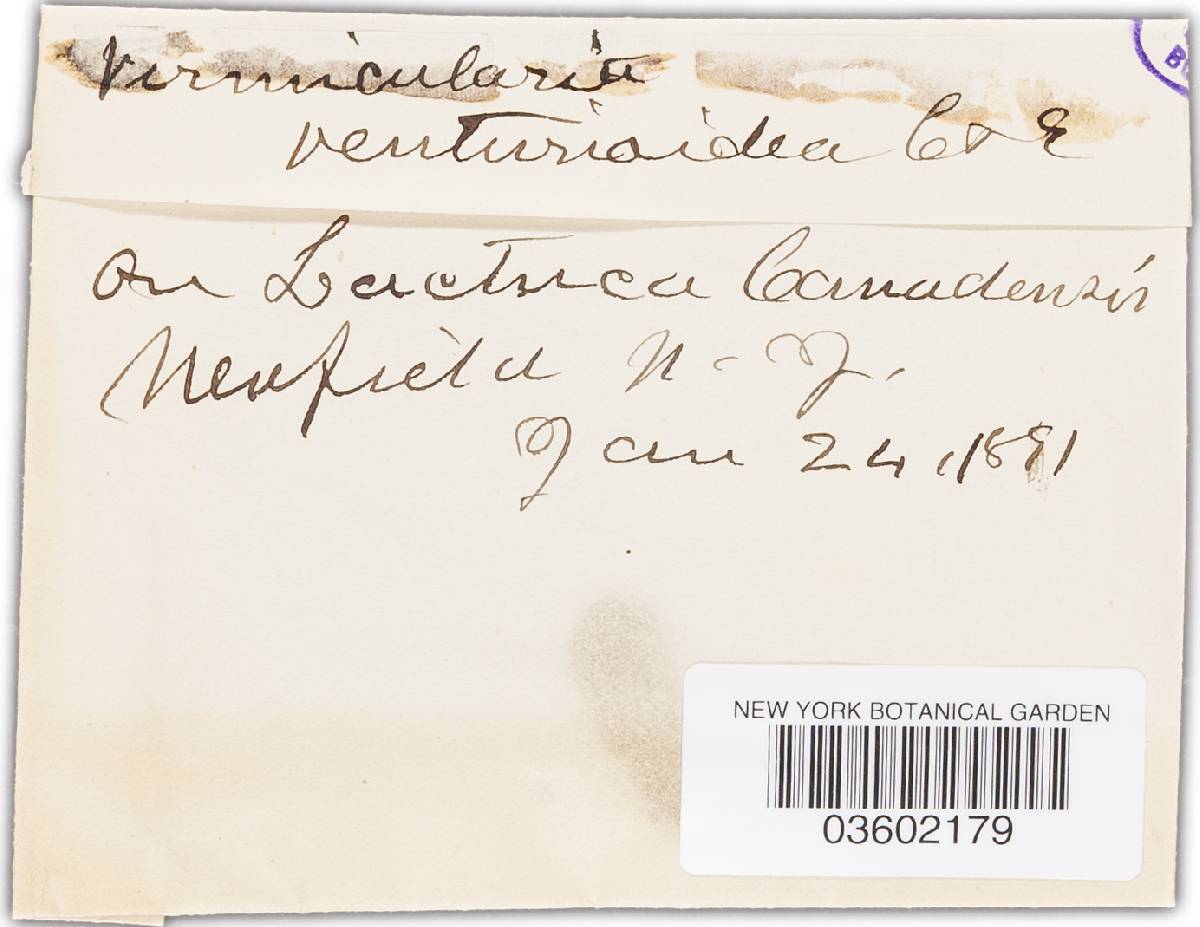 Virmicularia
venturioidea C & E
on Lactuca Canadensis
Newfield N-J.
Jan 24, 1891
NEW YORK BOTANICAL GARDEN
03602179